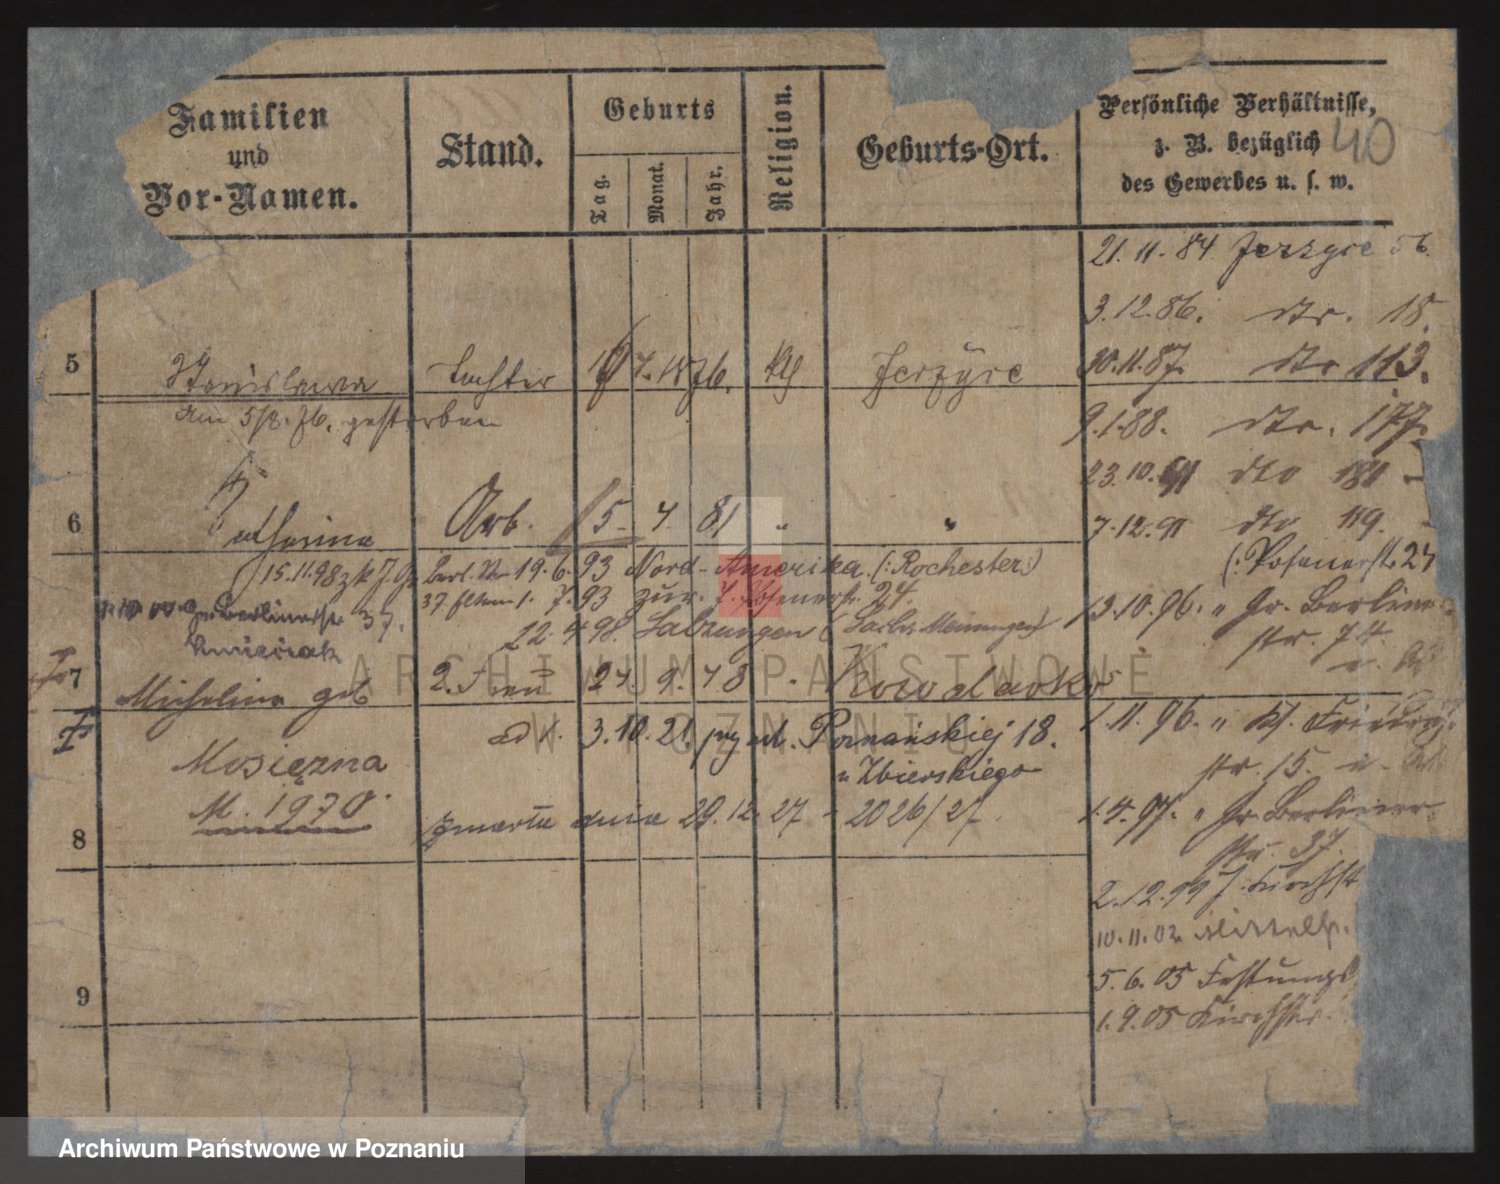 Familien
und
Vor-Namen.
Stand.
Geburts
Tag.
Monat.
Jahr.
Religion.
Geburts-Ort.
Persönliche Verhältnisse,
z. B. bezüglich
des Gewerbes u. s. w.
40
21. 11. 84 Jerzyce 56
3. 12. 86. dto. 18.
30. 11. 87. dto 113.
5 Stanislawa Tochter 4. 1876. kth Jerzyce
am 5/8. 76. gestorben
9. 1. 88. dto. 177.
23. 10. 91 dto 181
6 Catharina Arb. 5. 4. 81 " "
7. 12. 91 dto 119.
(: Posenerst. 24
15. 11. 98 Berl. Str 19. 6. 93 Nord-Amerika (: Rochester :)
37 1. 7. 93 zur. Posenerstr. 24.
Gr. Berlinerstr. 37.
22. 4 98. Salzungen (Sachs. Meiningen)
Kmieciak
13. 10. 96. " Gr. Berliner
str. 74
7 Michalina geb 2. Frau 24. 9. 48 "
Mosiężna
M. 1970.
3. 10. 21. przy ul. Poznańskiej 18.
u Zbierskiego
1. 11. 96. "
str. 15.
zmarła dnia 29. 12. 27 - 2026/27.
8
1. 4. 97. " Gr. Berliner
str. 37.
2. 12. 99 Kirchst
10. 11. 02
5. 6. 05 Festungs
9
1. 9. 05 Kirchstr.
ARCHIWUM PAŃSTWOWE
W POZNANIU
Archiwum Państwowe w Poznaniu